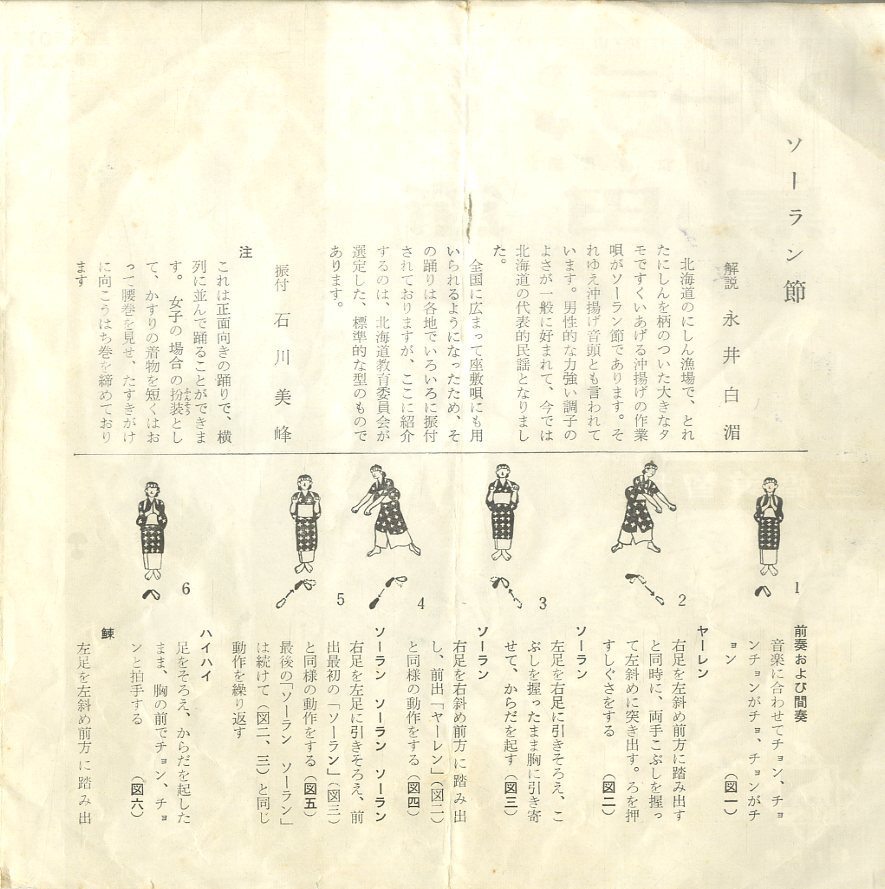 ソーラン節
解説 永井白湄
北海道のにしん漁場で、とれ
たにしんを柄のついた大きなタ
モですくいあげる沖揚げの作業
唄がソーラン節であります。そ
れゆえ沖揚げ音頭とも言われて
います。男性的な力強い調子の
よさが一般に好まれて、今では
北海道の代表的民謡となりまし
た。
全国に広まって座敷唄にも用
いられるようになったため、そ
の踊りは各地でいろいろに振付
されておりますが、ここに紹介
するのは、北海道教育委員会が
選定した、標準的な型のもので
あります。
振付 石川美峰
注
これは正面向きの踊りで、横
列に並んで踊ることができま
す。女子の場合の扮装とし
ふんそう
て、かすりの着物を短くはお
って腰巻を見せ、たすきがけ
に向こうはち巻を締めており
ます
1
前奏および間奏
音楽に合わせてチョン、チョ
ンチョンがチョ、チョンがチ
ョン（図一）
2
ヤーレン
右足を左斜め前方に踏み出す
と同時に、両手こぶしを握っ
て左斜めに突き出す。ろを押
すしぐさをする（図二）
3
ソーラン
左足を右足に引きそろえ、こ
ぶしを握ったまま胸に引き寄
せて、からだを起す（図三）
4
ソーラン
右足を右斜め前方に踏み出
し、前出「ヤーレン」（図二）
と同様の動作をする（図四）
5
ソーラン ソーラン ソーラン
右足を左足に引きそろえ、前
出最初の「ソーラン」（図三）
と同様の動作をする（図五）
最後の「ソーラン ソーラン」
は続けて（図二、三）と同じ
動作を繰り返す
6
ハイハイ
足をそろえ、からだを起した
まま、胸の前でチョン、チョ
ンと拍手する（図六）
鰊
左足を左斜め前方に踏み出